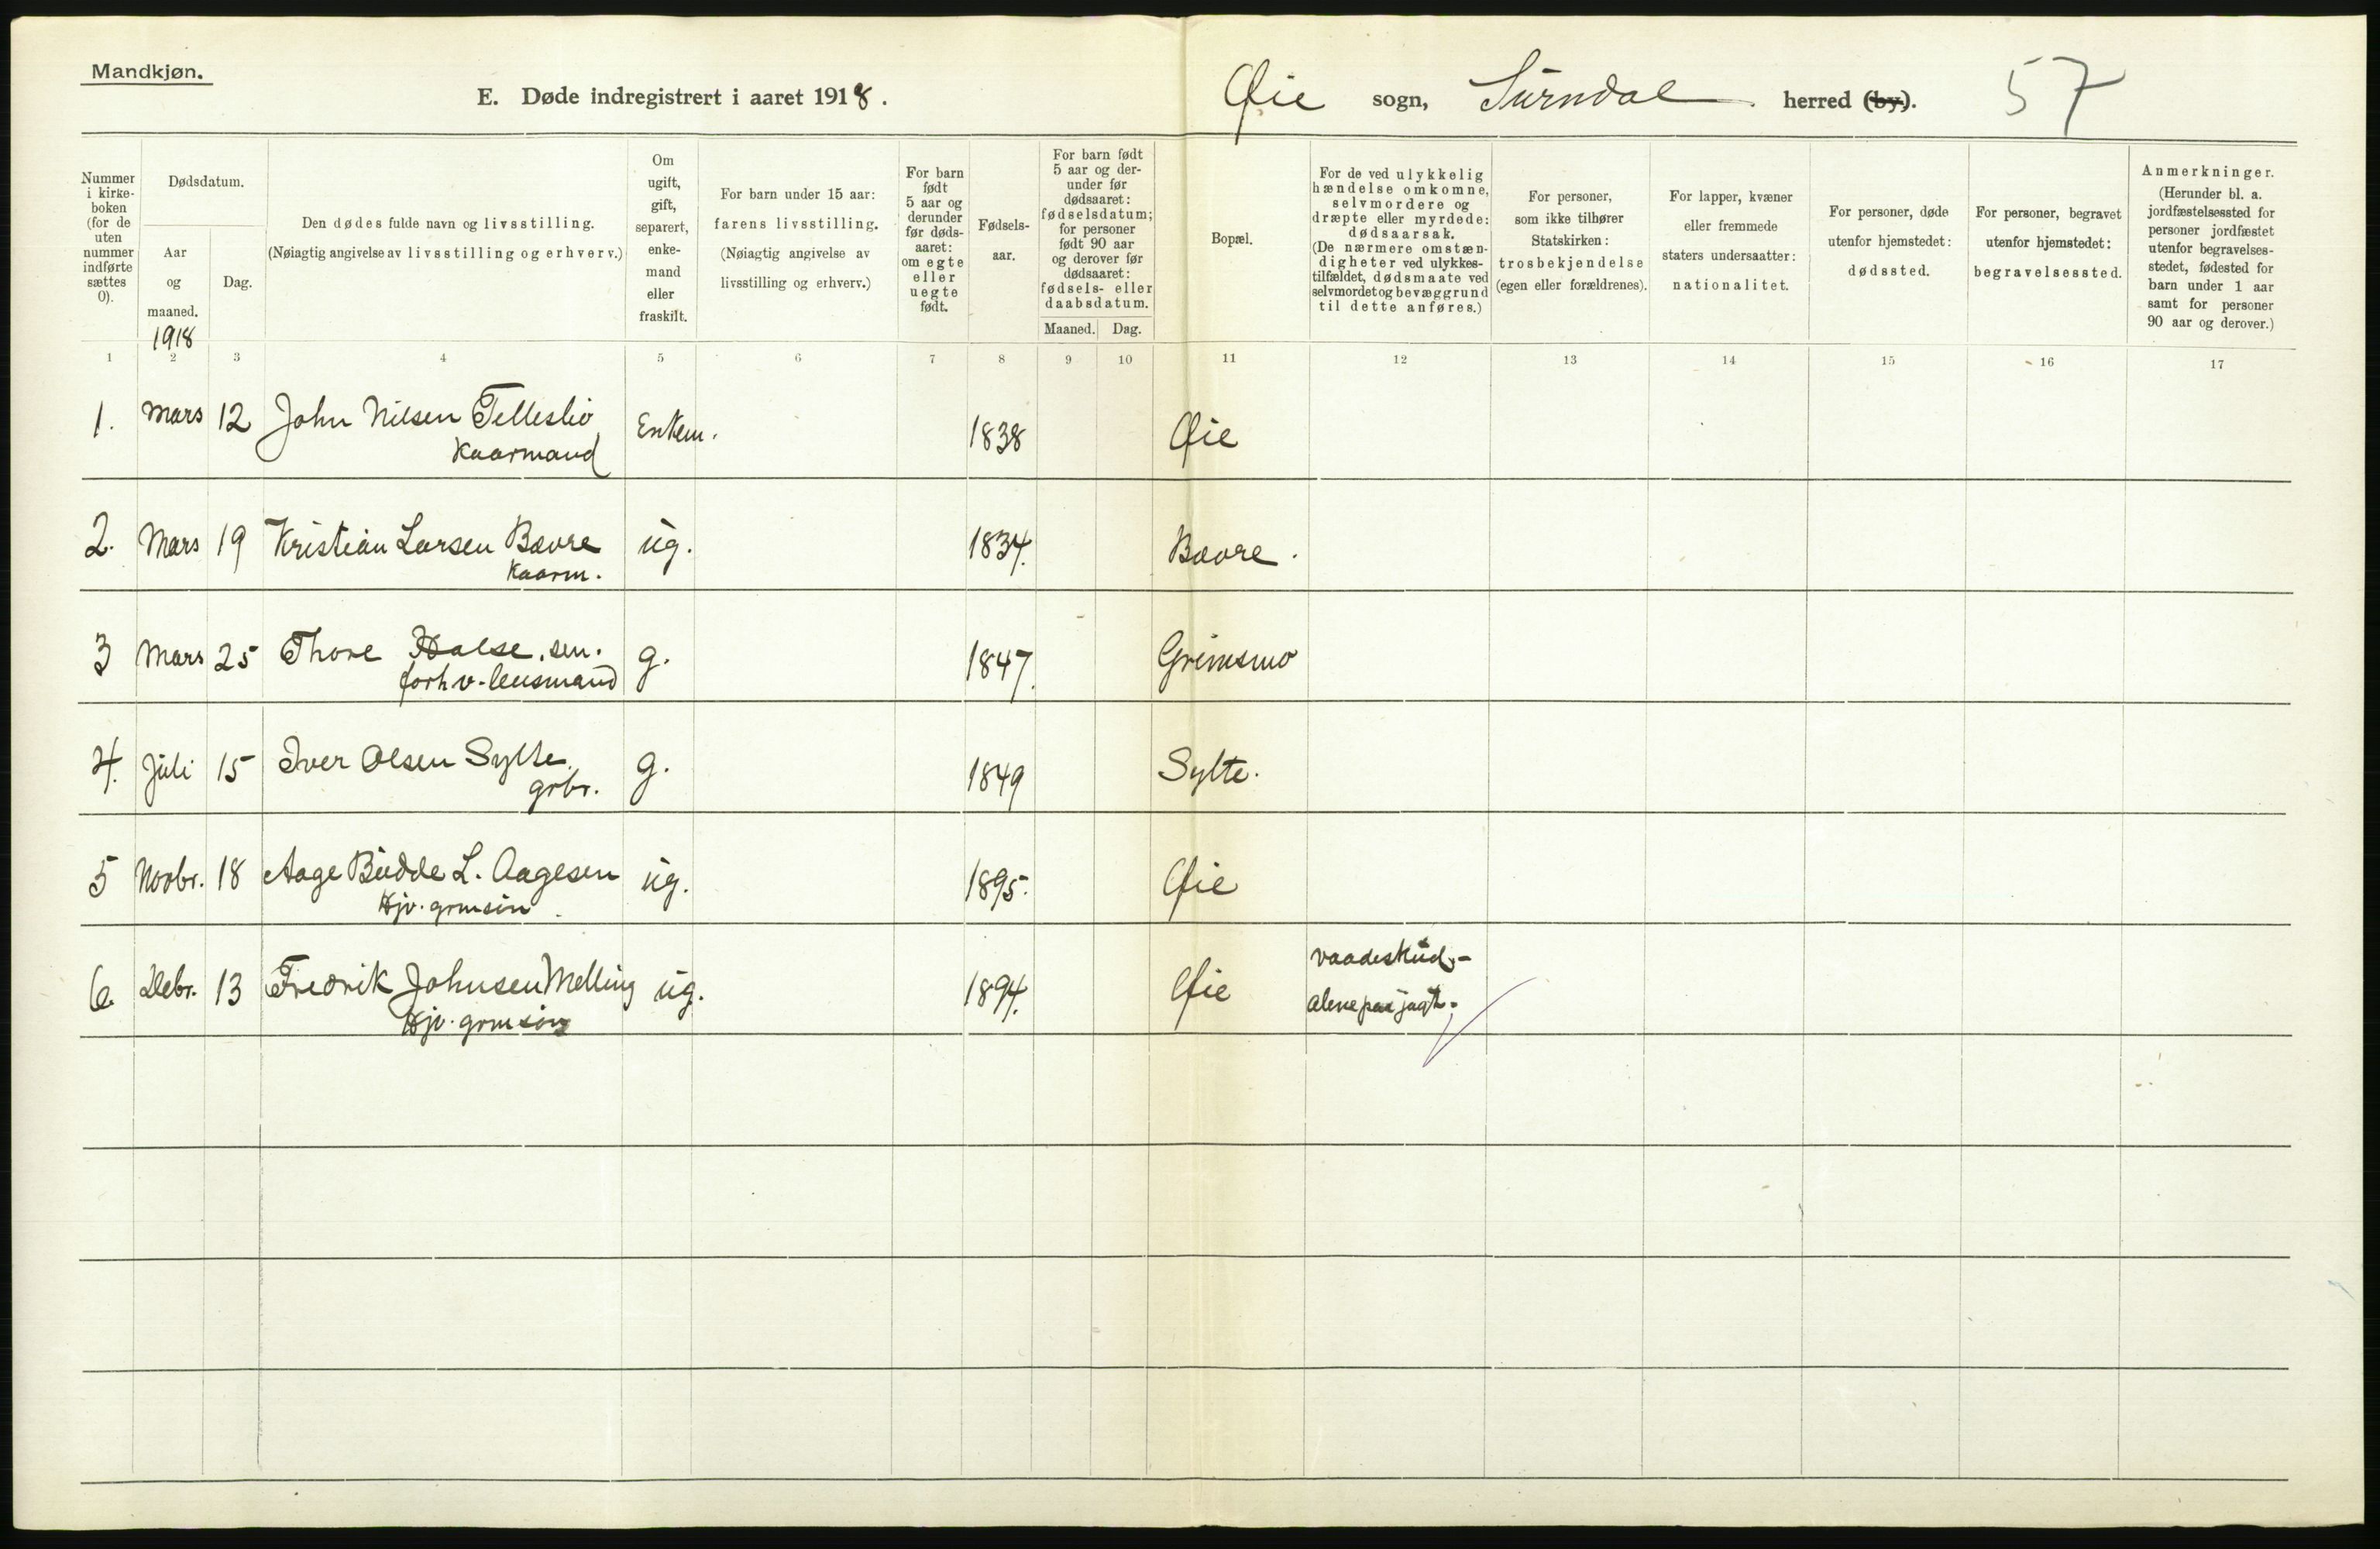 Mandkjøn.
E. Døde indregistrert i aaret 1918.
Øie sogn, Surndal herred (by).
57
Nummer i kirke-boken (for de uten nummer indførte sættes 0).
Dødsdatum.
Aar og maaned.
1918
Dag.
Den dødes fulde navn og livsstilling.
(Nøiagtig angivelse av livsstilling og erhverv.)
Om ugift, gift, separert, enke-mand eller fraskilt.
For barn under 15 aar:
farens livsstilling.
(Nøiagtig angivelse av livsstilling og erhverv.)
For barn født 5 aar og derunder før døds-aaret: om egte eller uegte født.
Fødsels-aar.
For barn født 5 aar og der-under før dødsaaret: fødselsdatum; for personer født 90 aar og derover før dødsaaret: fødsels- eller daabsdatum.
Maaned. Dag.
Bopæl.
For de ved ulykkelig hændelse omkomne, selvmordere og dræpte eller myrdede: dødsaarsak.
(De nærmere omstæn-digheter ved ulykkes-tilfældet, dødsmaate ved selvmordet og bevæggrund til dette anføres.)
For personer, som ikke tilhører Statskirken: trosbekjendelse (egen eller forældrenes).
For lapper, kvæner eller fremmede staters undersaatter: nationalitet.
For personer, døde utenfor hjemstedet: dødssted.
For personer, begravet utenfor hjemstedet: begravelsessted.
Anmerkninger.
(Herunder bl. a. jordfæstelsessted for personer jordfæstet utenfor begravelses-stedet, fødested for barn under 1 aar samt for personer 90 aar og derover.)
1 2 3 4 5 6 7 8 9 10 11 12 13 14 15 16 17
1. Mars 12 John Nilsen Telleslio Enkem. 1838 Øie
Kaarmand
2. Mars 19 Kristian Larsen Bævre ug. 1834. Bævre.
Kaarm.
3 Mars 25 Thore Halse, sen. g. 1847. Grimsmo
forhv. lensmand
4. Juli 15 Iver Olsen Sylte. g. 1849 Sylte.
grbr.
5 Novbr. 18 Aage Budde L. Aagesen ug. 1895. Øie
Hjv. grmsøn
6 Debr. 13 Fredrik Johnsen Melling ug. 1894. Øie vaadeskud,-
Hjv. grmsøn alene paa jagt.